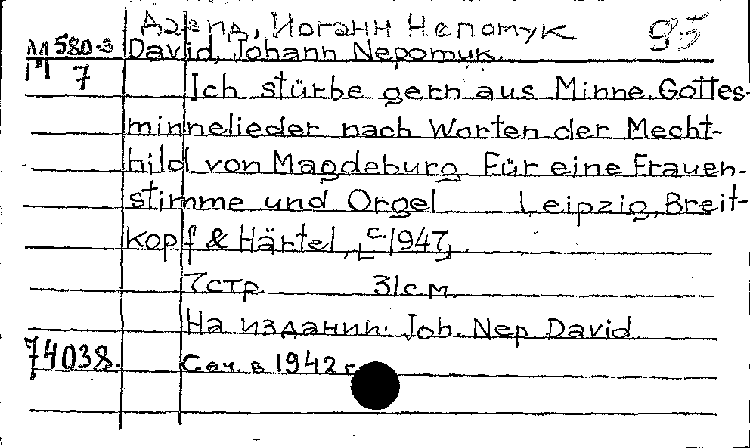 Давид, Иоганн Непомук 95
М 580-3 David, Johann Nepomuk.
7 Ich stürbe gern aus Minne. Gottes-
minnelieder nach Worten der Mecht-
hild von Magdeburg. Für eine Frauen-
stimme und Orgel Leipzig, Breit-
kopf & Härtel, [c 1947].
7 стр. 31 см.
На издании: Joh. Nep. David
74038. Соч. в 1942 г.